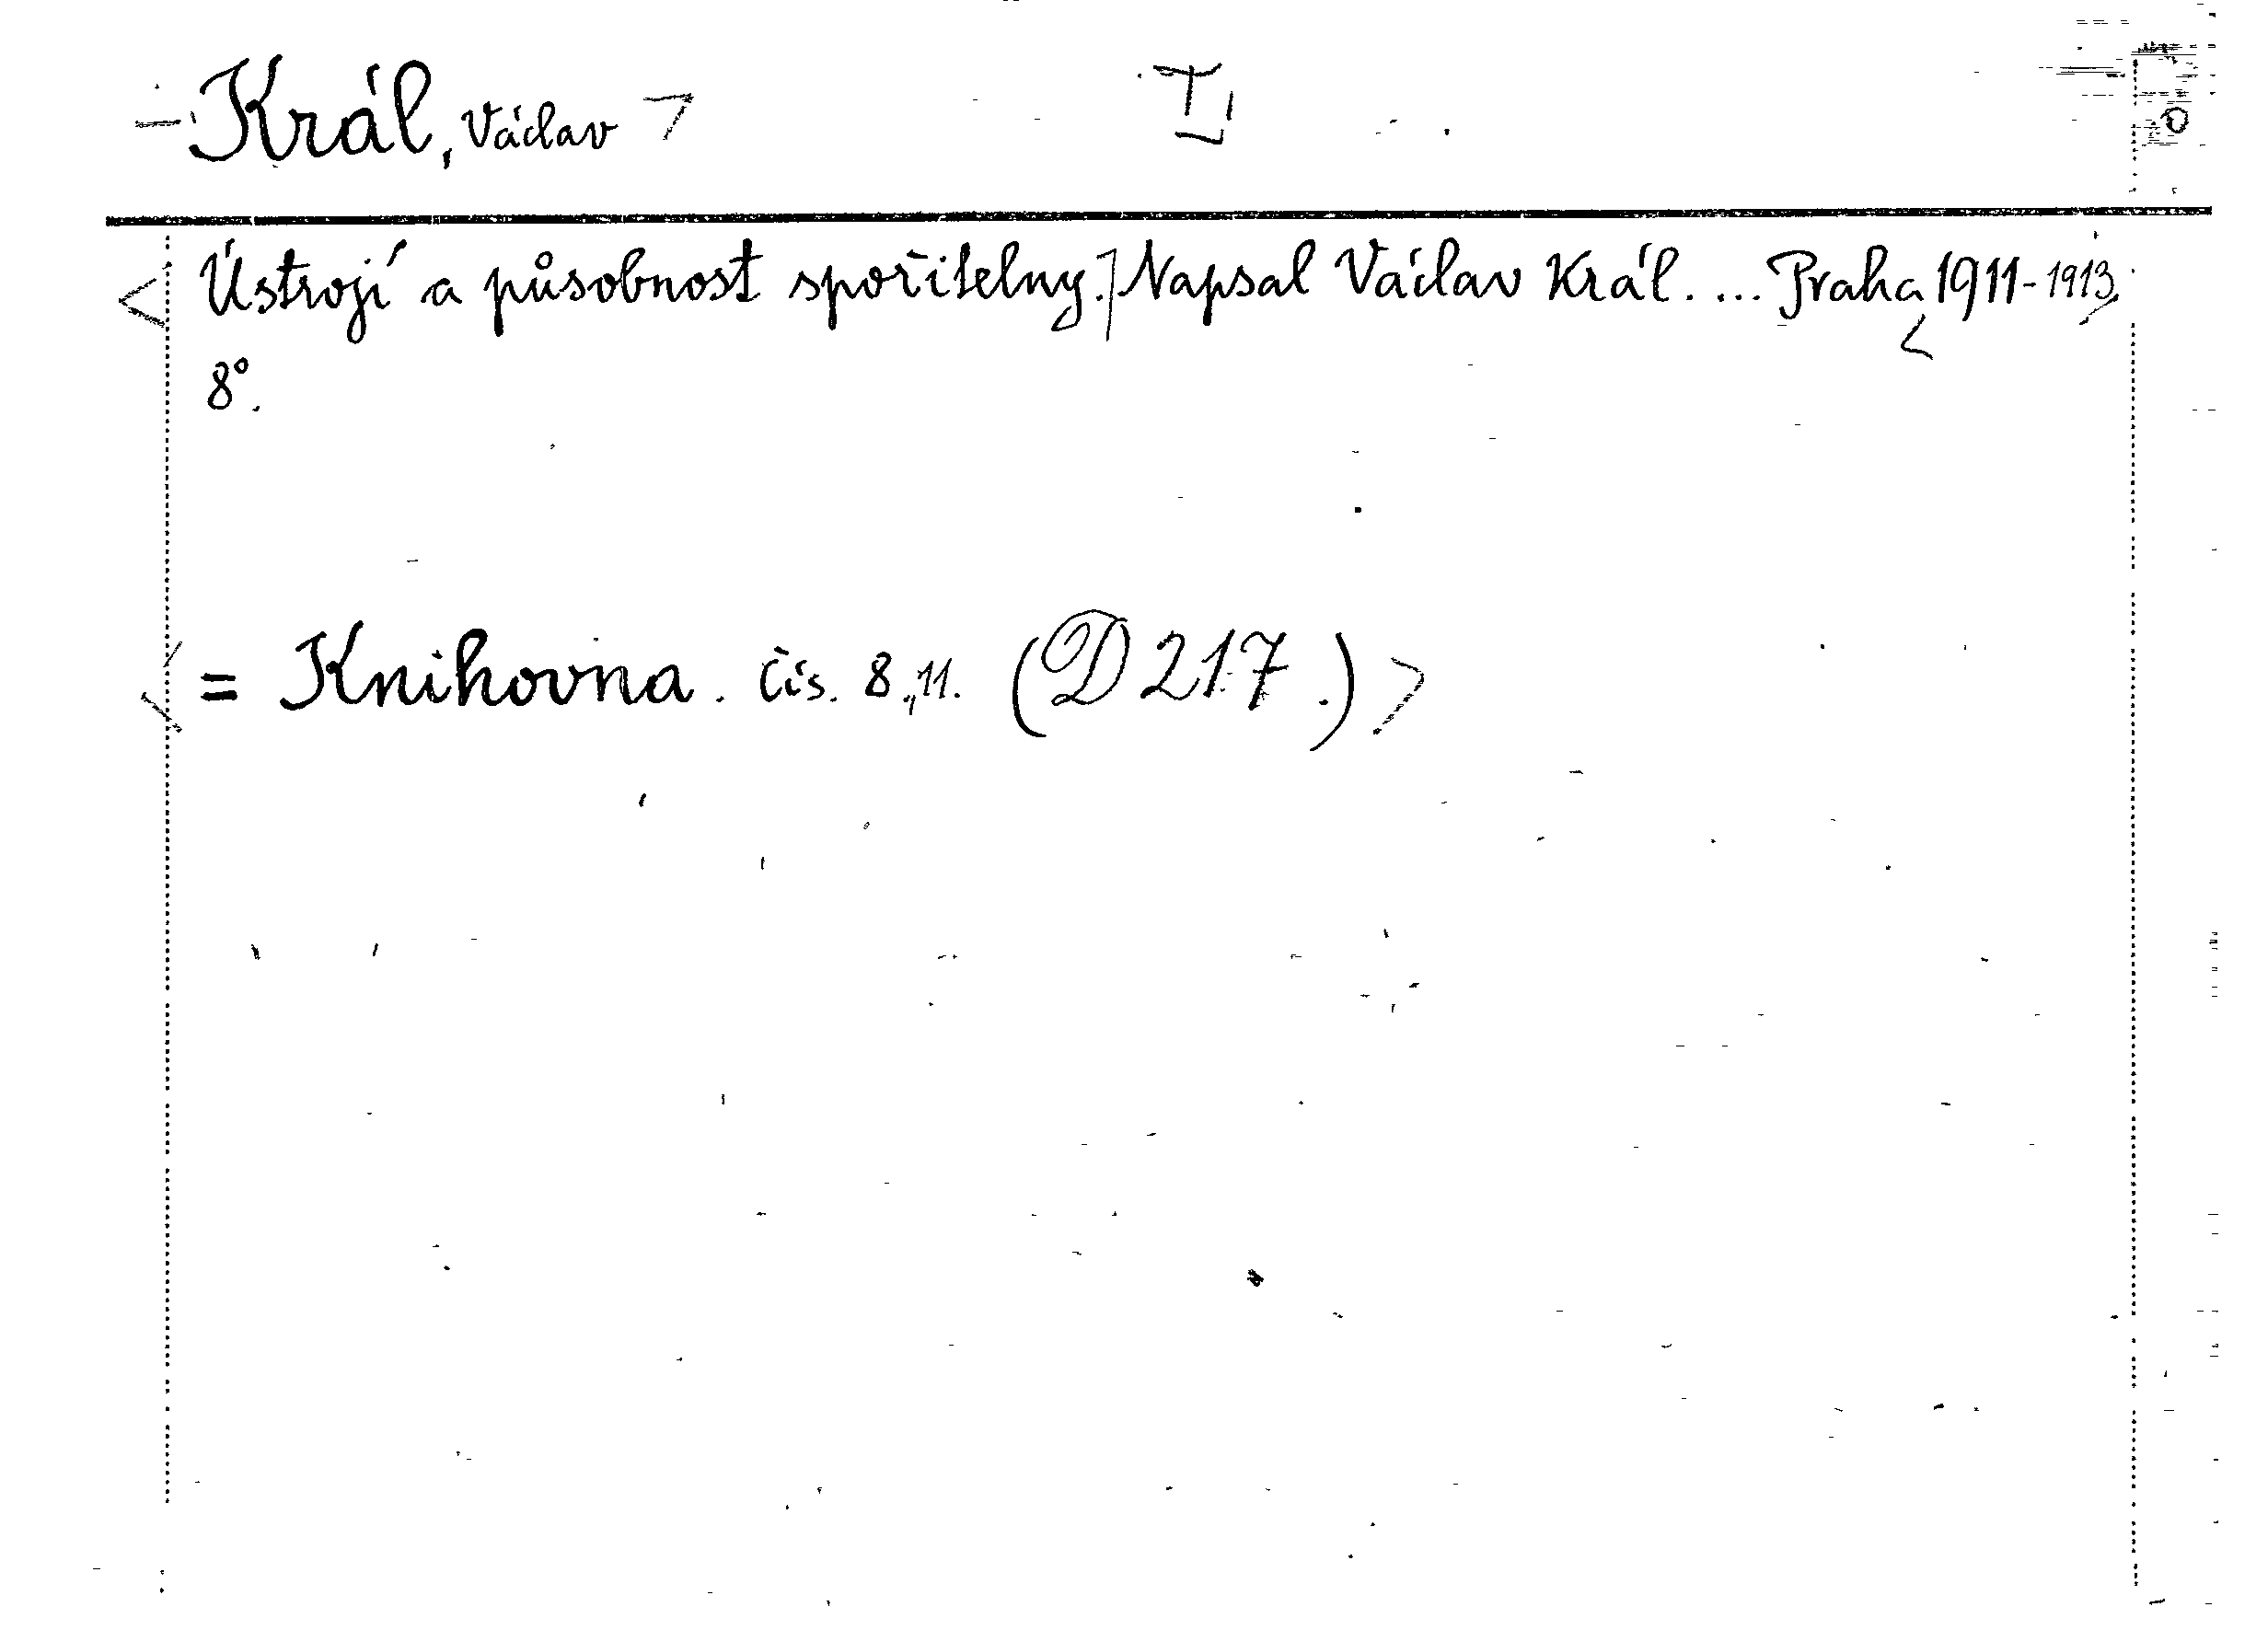 Král, Václav
Ústrojí a působnost spořitelny. Napsal Václav Král. ... Praha 1911-1913.
8°.
= Knihovna. čís. 8., 11. (D 217.)